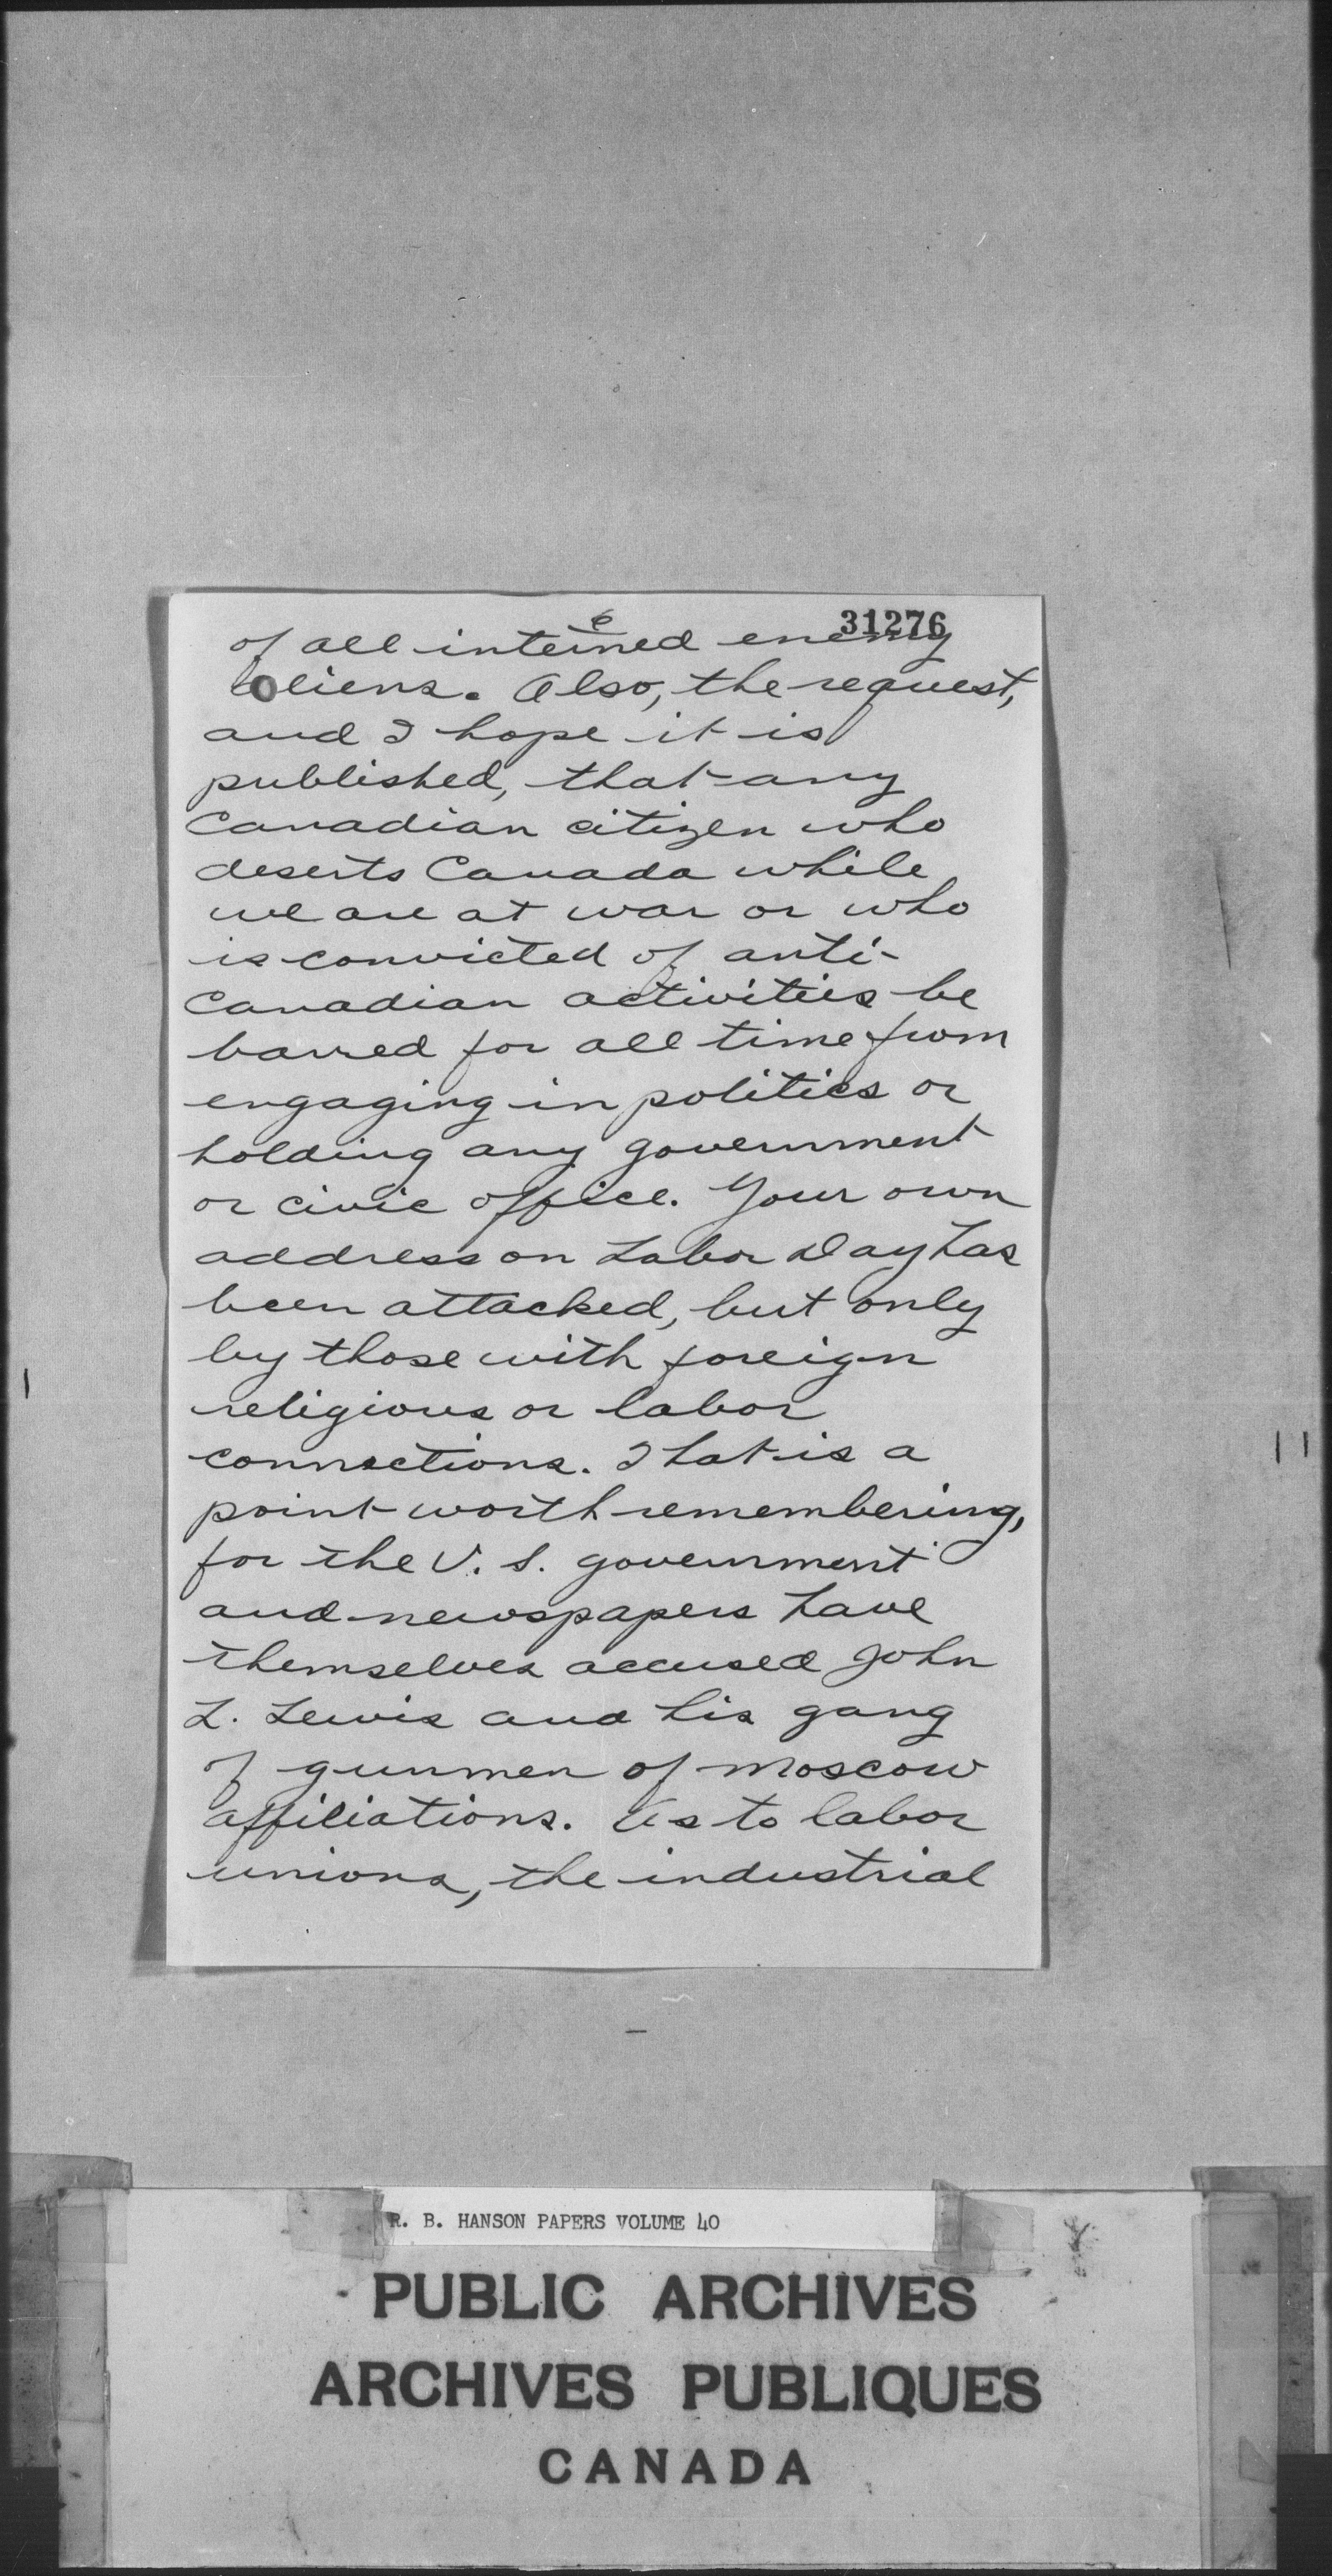 6
31276
of all interned enemy
aliens. Also, the request,
and I hope it is
published, that any
Canadian citizen who
deserts Canada while
we are at war or who
is convicted of anti-
Canadian activities be
barred for all time from
engaging in politics or
holding any government
or civic office. Your own
address on Labor Day has
been attacked, but only
by those with foreign
religious or labor
connections. That is a
point worth remembering,
for the U.S. government
and newspapers have
themselves accused John
L. Lewis and his gang
of gunmen of Moscow
affiliations. As to labor
unions, the industrial
R. B. HANSON PAPERS VOLUME 40
PUBLIC ARCHIVES
ARCHIVES PUBLIQUES
CANADA